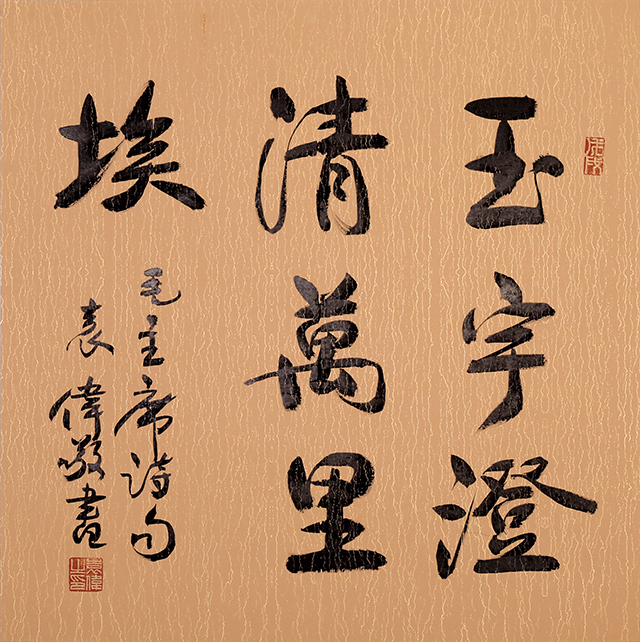 玉宇澄
清萬里
埃
毛主席詩句
袁偉敬書
袁偉之印